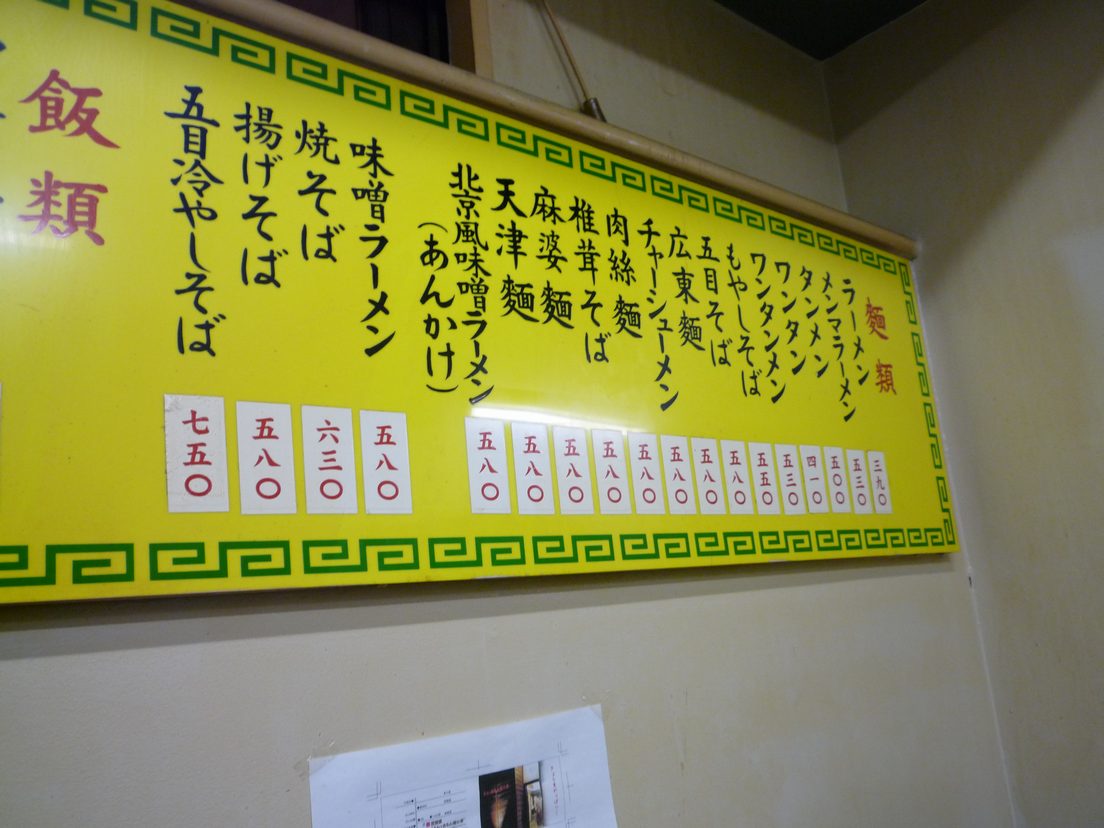 麵類
ラーメン 三九〇
メンマラーメン 五三〇
タンメン 五〇〇
ワンタン 四一〇
ワンタンメン 五三〇
もやしそば 五五〇
五目そば 五八〇
広東麵 五八〇
チャーシューメン 五八〇
肉絲麵 五八〇
椎茸そば 五八〇
麻婆麵 五八〇
天津麵 五八〇
北京風味噌ラーメン 五八〇
(あんかけ)
味噌ラーメン 五八〇
焼そば 六三〇
揚げそば 五八〇
五目冷やしそば 七五〇
飯類